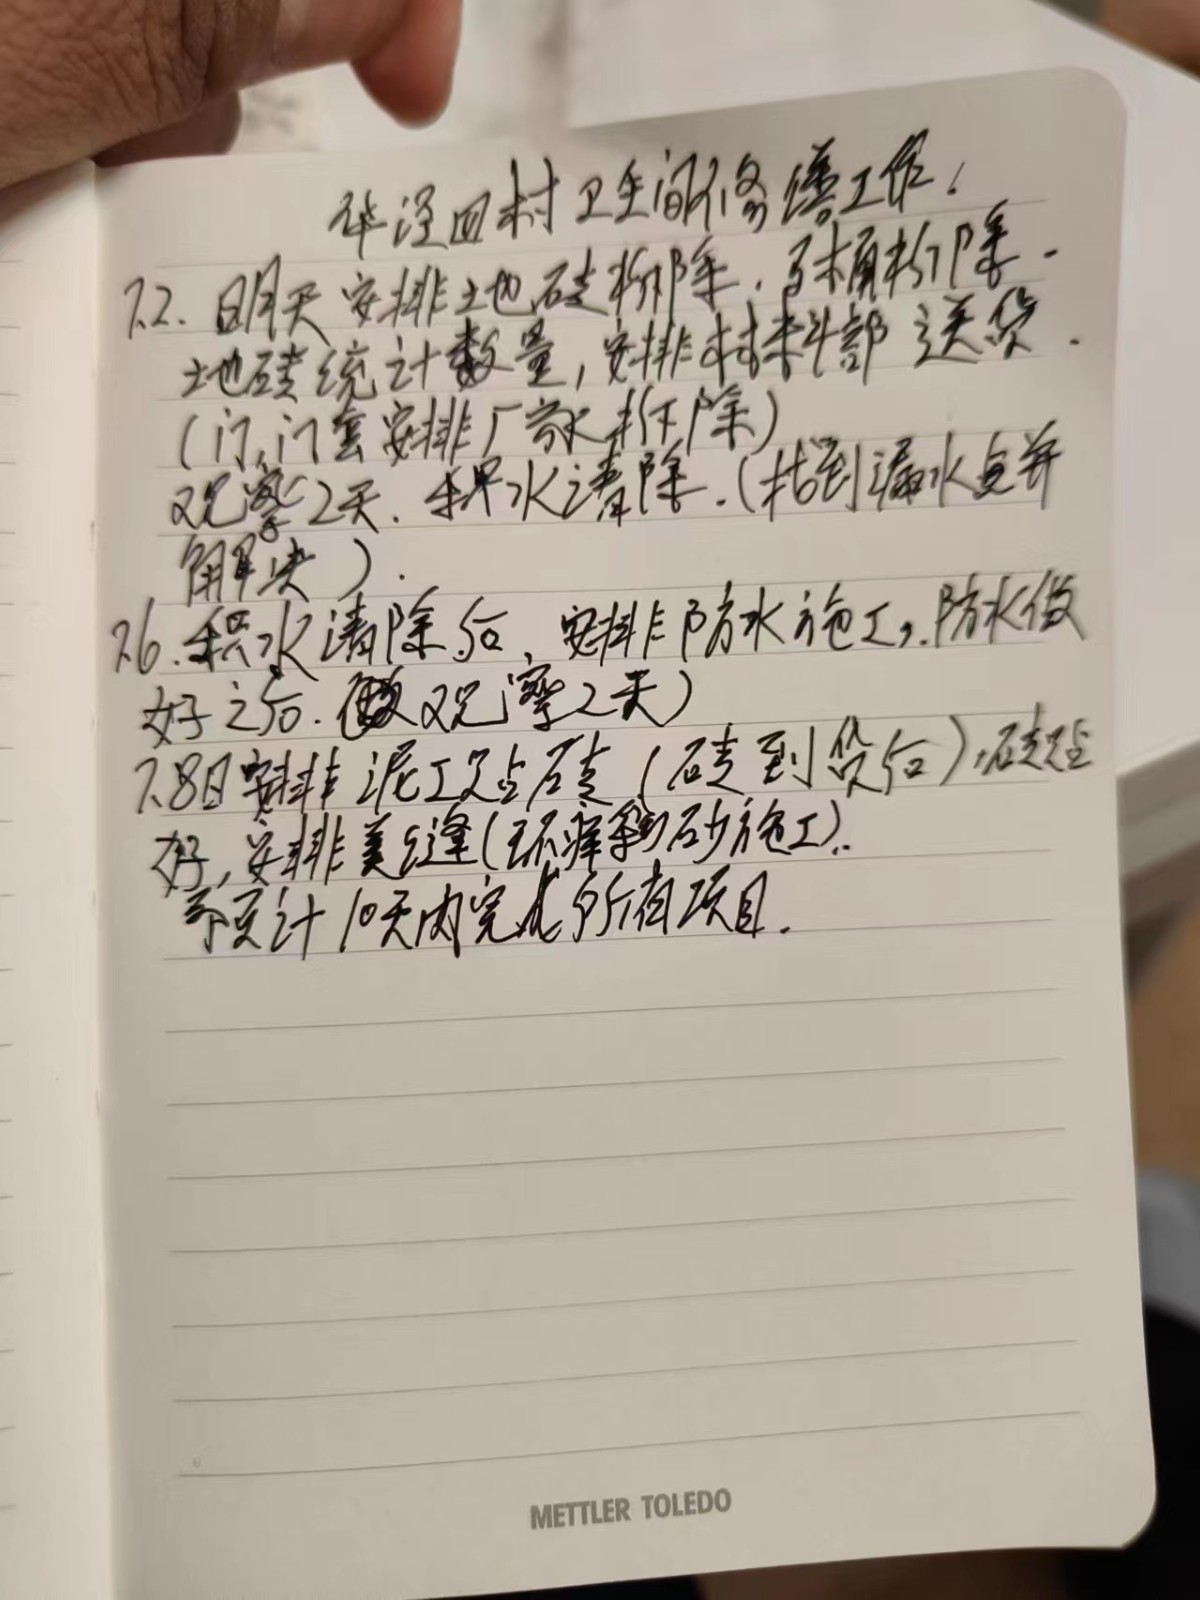 华泾四村卫生间修缮工作.
7.2. 明天安排土地砖拆除.马桶拆除.
土地砖统计数量,安排材料部送货.
(门,门套安排厂家拆除)
观察2天.积水清除.(找到漏水点并
解决).
7.6.积水清除后,安排防水施工,防水做
好之后.(观察2天)
7.8日安排泥工贴砖(砖到货后),砖贴
好,安排美缝(环氧彩砂施工).
预计10天内完成所有项目.
METTLER TOLEDO